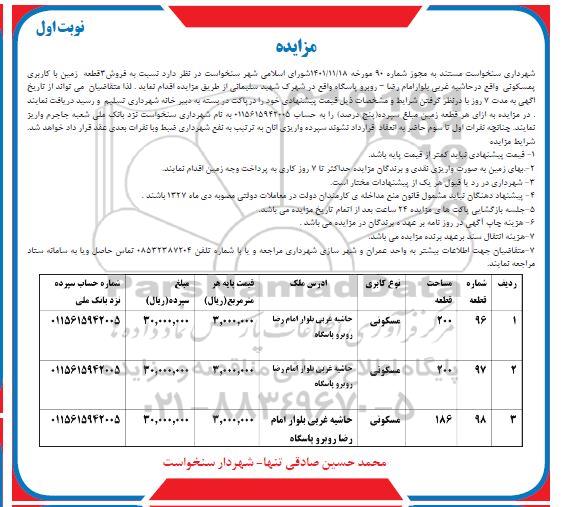 نوبت اول
مزایده
شهرداری سنخواست مستند به مجوز شماره ۹۰ مورخه ۱۴۰۱/۱۱/۱۸شورای اسلامی شهر سنخواست در نظر دارد نسبت به فروش۳قطعه زمین با کاربری
مسکونی واقع درحاشیه غربی بلوارامام رضا – روبرو پاسگاه واقع در شهرک شهید سلیمانی از طریق مزایده اقدام نماید . لذا متقاضیان می تواند از تاریخ
آگهی به مدت ۷ روز با درنظر گرفتن شرایط و مشخصات ذیل قیمت پیشنهادی خود را درپاکت در بسته به دبیر خانه شهرداری تسلیم و رسید دریافت نمایند
. در مزایده به ازای هر قطعه زمین مبلغ سپرده(پنج درصد) را به حساب ۰۱۱۵۶۱۵۹۴۲۰۰۵ به نام شهرداری سنخواست نزد بانک ملی شعبه جاجرم واریز
نمایند. چنانچه نفرات اول تا سوم حاضر به انعقاد قرارداد نشوند سپرده واریزی آنان به ترتیب به نفع شهرداری ضبط وبا نفرات بعدی عقد قرار داد خواهد شد.
شرایط مزایده
۱- قیمت پیشنهادی نباید کمتر از قیمت پایه باشد.
۲-بهای زمین به صورت واریزی نقدی و برندگان مزایده حداکثر تا ۷ روز کاری به پرداخت وجه زمین اقدام نمایند.
۳- شهرداری در رد یا قبول هر یک از پیشنهادات مختار است.
۴- پیشنهاد دهندگان نباید مشمول قانون منع مداخله ی کارمندان دولت در معاملات دولتی مصوبه دی ماه ۱۳۲۷ باشند .
۵-جلسه بازگشایی پاکت ها ی مزایده ۲۴ ساعت بعد از اتمام تاریخ مزایده می باشد.
۶-هزینه چاپ آگهی در روز نامه بر عهد ه برندگان در مزایده می باشد .
۷-هزینه انتقال سند برعهد برنده مزایده می باشد.
۷-متقاضیان جهت اطلاعات بیشتر به واحد عمران و شهر سازی شهرداری مراجعه و یا با شماره تلفن ۰۵۸۳۲۳۸۷۲۰۴ تماس حاصل ویا به سامانه ستاد
مراجعه نمایند.
ردیف شماره قطعه مساحت قطعه نوع کابری ادرس ملک قیمت پایه هر مترمربع(ریال) مبلغ سپرده(ریال) شماره حساب سپرده نزد بانک ملی
۱ ۹۶ ۲۰۰ مسکونی حاشیه غربی بلوار امام رضا روبرو پاسگاه ۳,۰۰۰,۰۰۰ ۳۰,۰۰۰,۰۰۰ ۰۱۱۵۶۱۵۹۴۲۰۰۵
۲ ۹۷ ۲۰۰ مسکونی حاشیه غربی بلوار امام رضا روبرو پاسگاه ۳,۰۰۰,۰۰۰ ۳۰,۰۰۰,۰۰۰ ۰۱۱۵۶۱۵۹۴۲۰۰۵
۳ ۹۸ ۱۸۶ مسکونی حاشیه غربی بلوار امام رضا روبرو پاسگاه ۳,۰۰۰,۰۰۰ ۳۰,۰۰۰,۰۰۰ ۰۱۱۵۶۱۵۹۴۲۰۰۵
محمد حسین صادقی تنها- شهردار سنخواست
۰۲۱-۸۸۳۴۹۶۷۰-۵